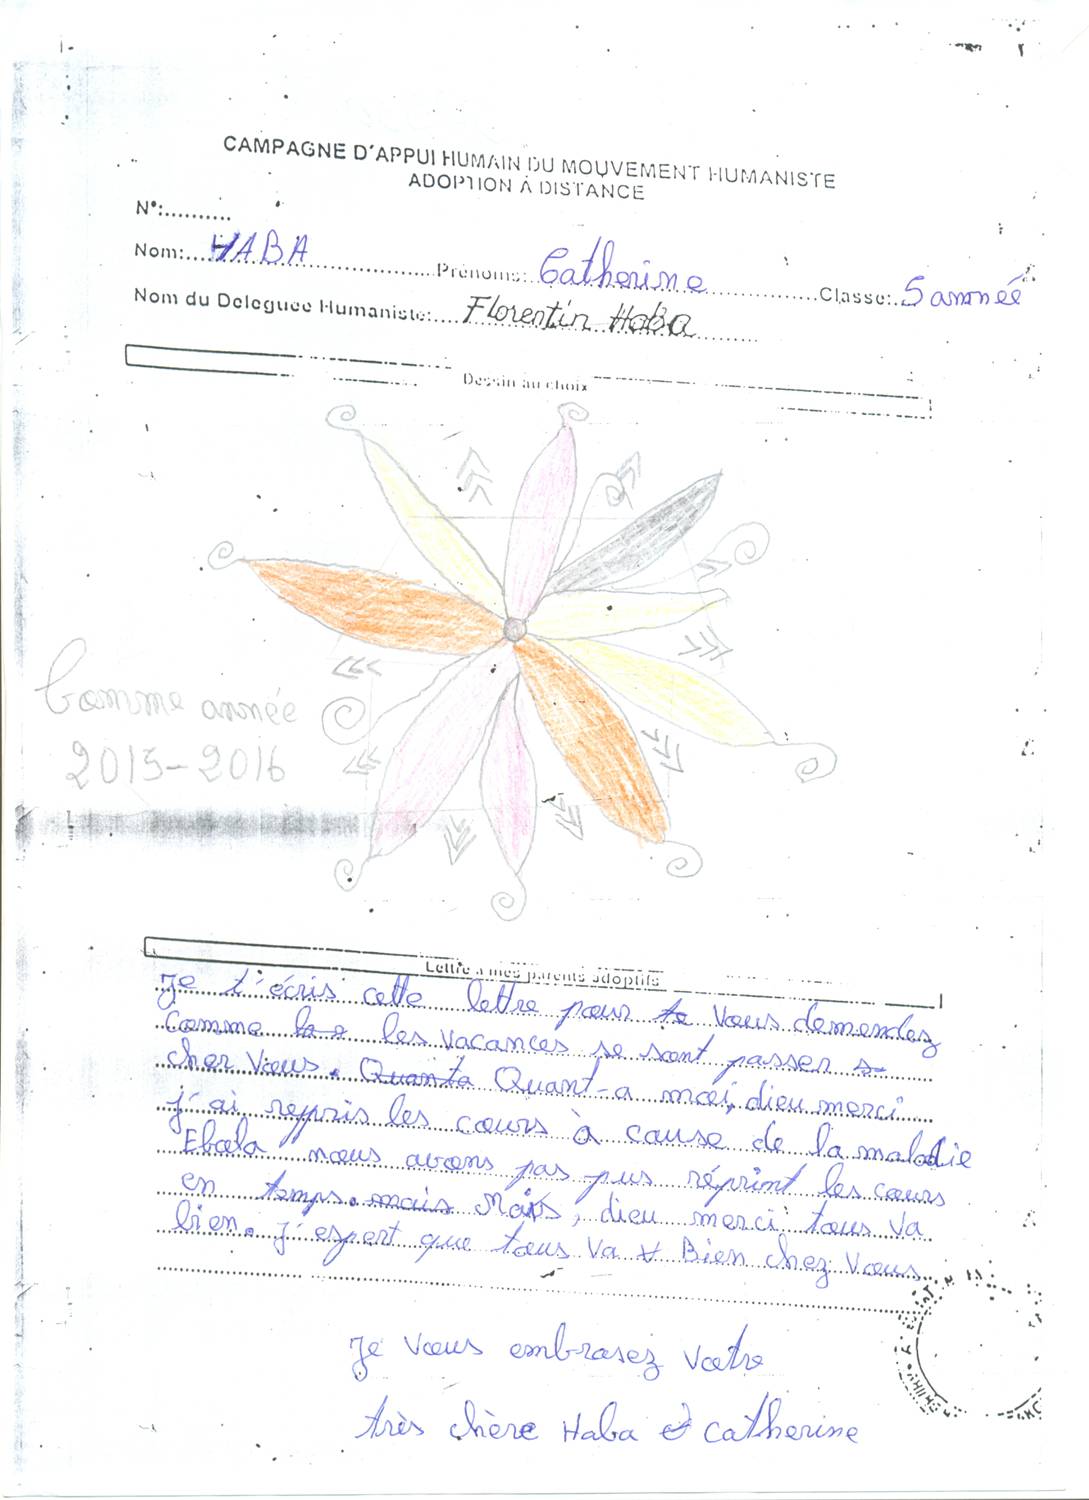 CAMPAGNE D'APPUI HUMAIN DU MOUVEMENT HUMANISTE
ADOPTION À DISTANCE
N°:..........
Nom:....HABA..................Prénoms: Catherine...............Classe:. 5 annnéé
Nom du Deleguee Humaniste:.... Florentin Haba..........
Dessin au choix
Comme année
2015-2016
Lettre à mes parents adoptifs
Je t'écris cette lettre pour to vous demendez
Comme la e les vacances se sont passer s
cher Vous. Quanta Quant-a moi, dieu merci
j'ai repris les cours à cause de la maladie
Ebola nous avons pas pus réprint les cours
en temps. mais Mais, dieu merci tous va
bien. j'espert que tous va Bien chez vous
Je vous embrasez votre
très chère Haba et Catherine